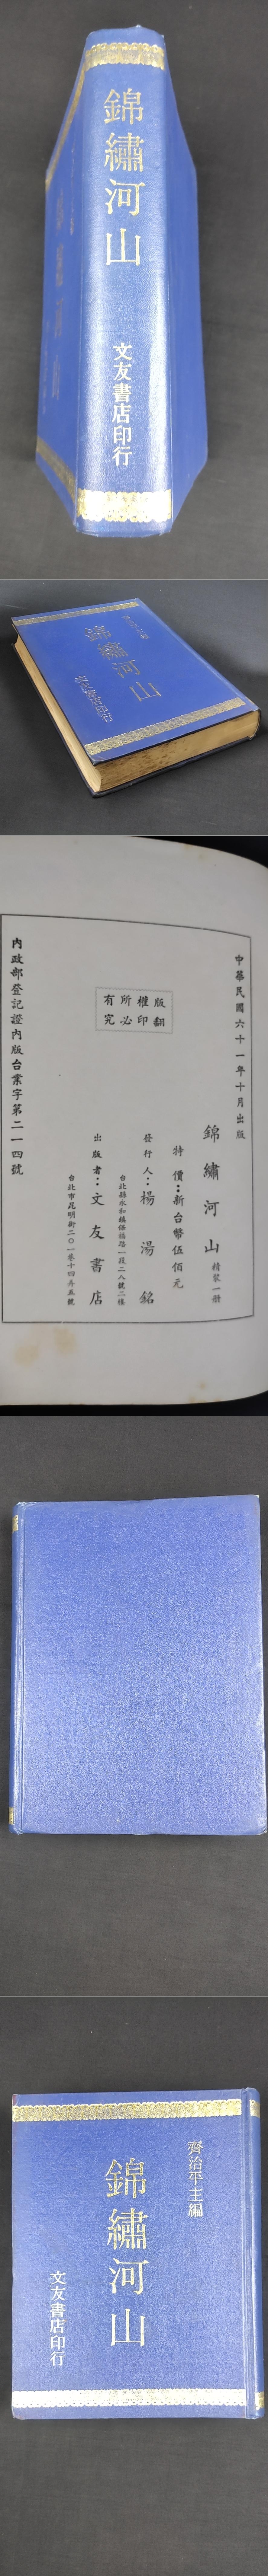 錦繡河山
文友書店印行
錦繡河山
中華民國六十一年十月出版
錦繡河山 精裝一冊
特價:新台幣伍佰元
發行人:楊湯銘
台北縣永和鎮保福路一段二八號二樓
版權所有
翻印必究
出版者:文友書店
台北市昆明街二〇一巷十四弄五號
內政部登記證內版台業字第二一四號
齊治平主編
錦繡河山
文友書店印行